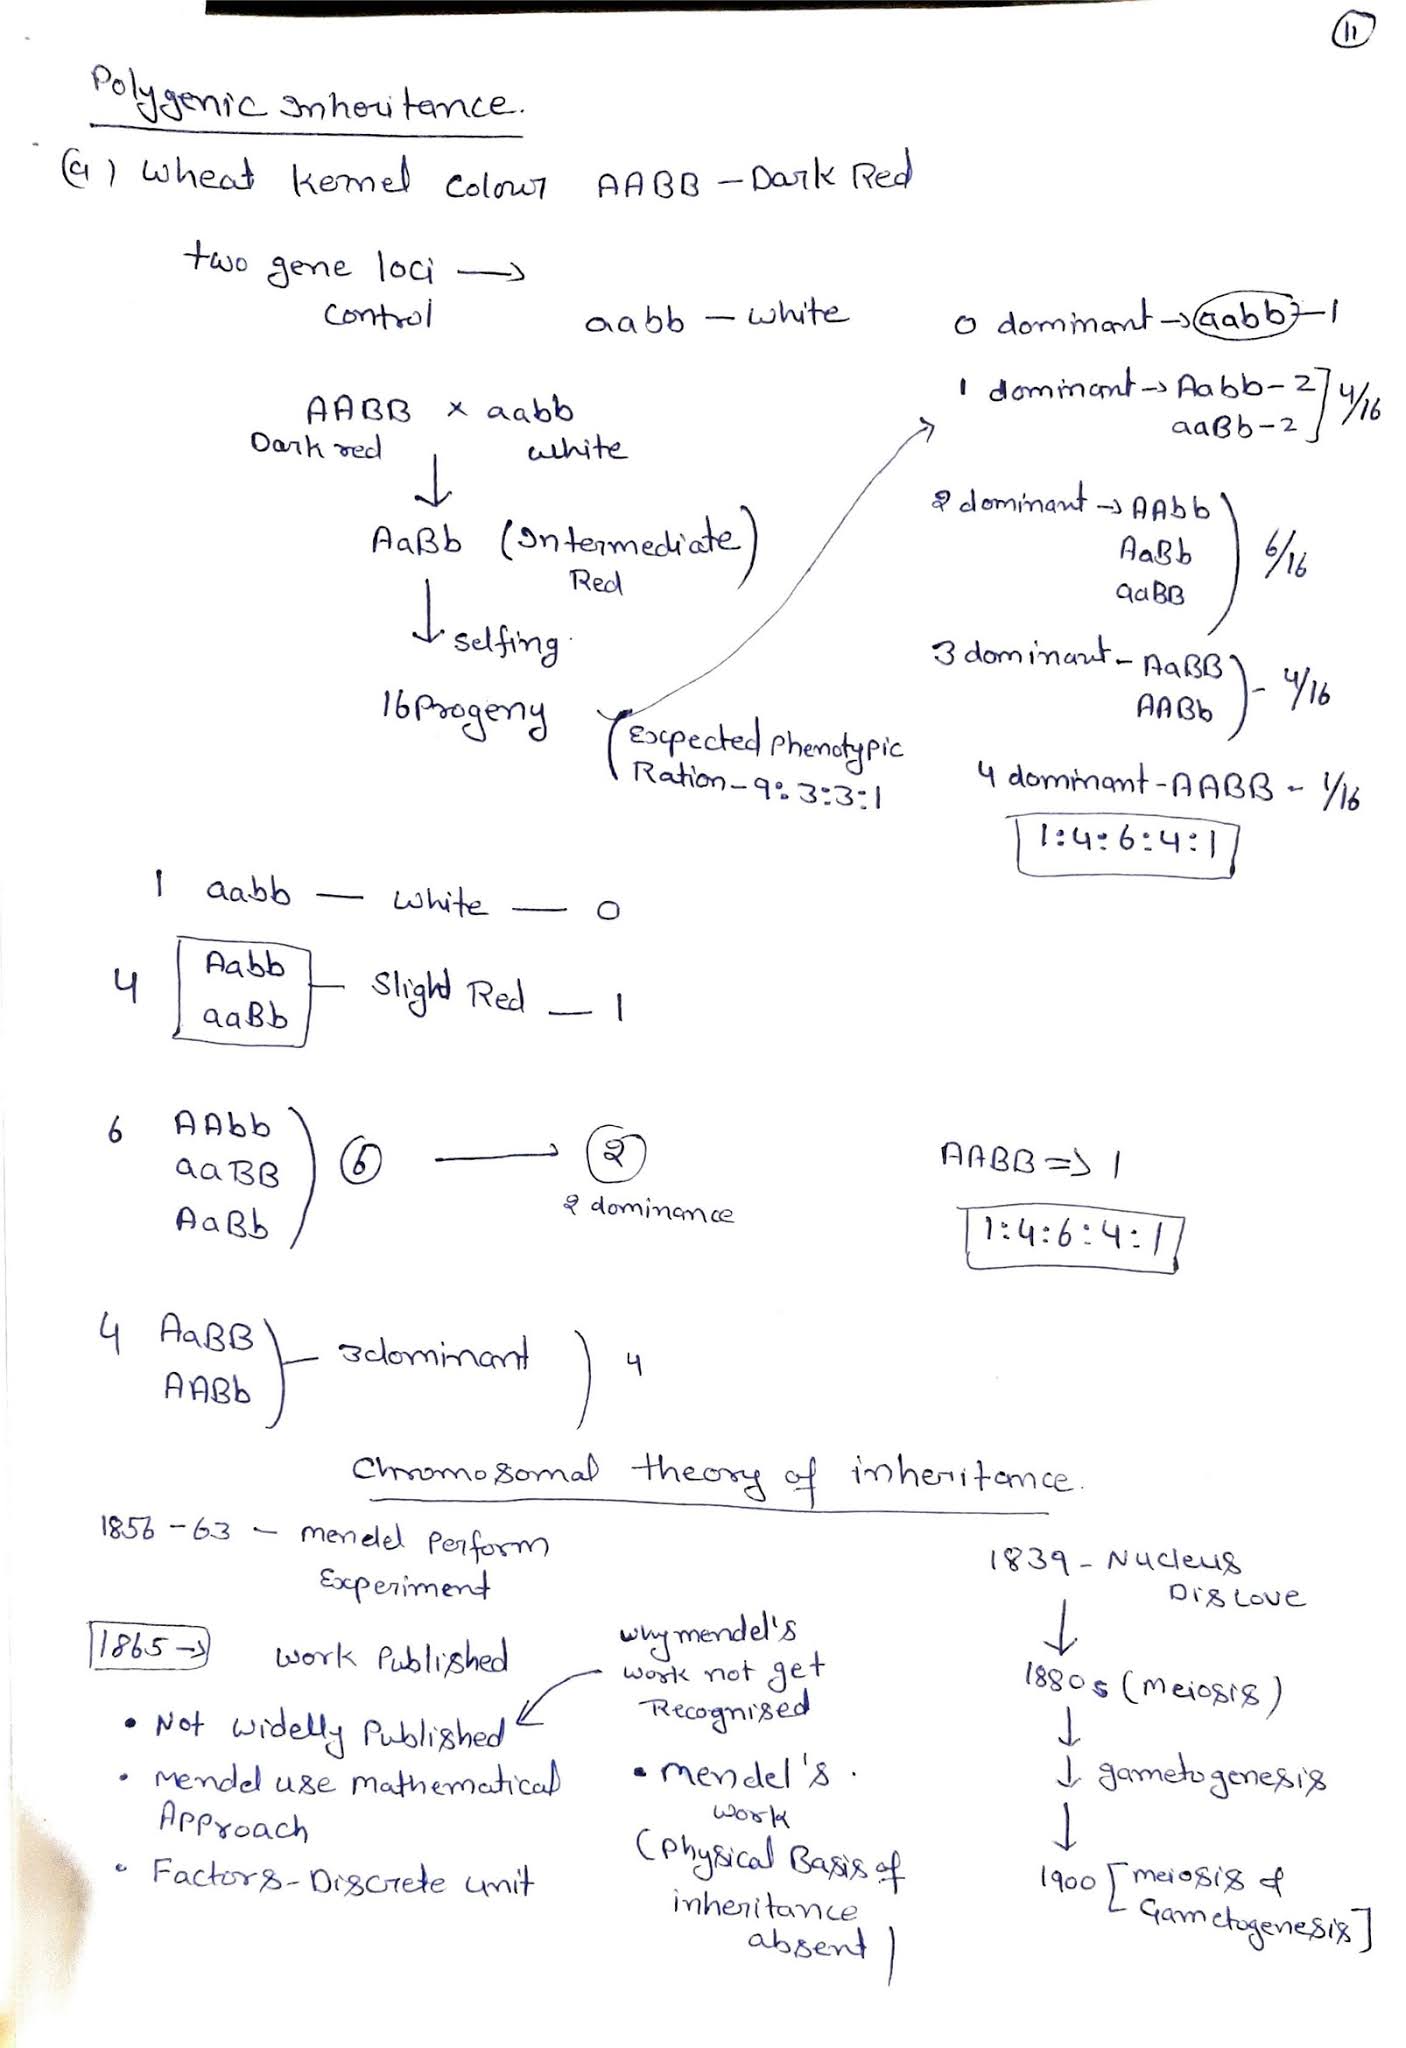 11
Polygenic Inheritance.
(a) Wheat Kernel Colour AABB - Dark Red
two gene loci →
control
aabb - white
AABB × aabb
Dark red white
↓
AaBb (Intermediate)
Red
↓ selfing
16 Progeny
(Expected Phenotypic
Ration - 9:3:3:1
0 dominant → aabb - 1
1 dominant → Aabb - 2] 4/16
aaBb - 2
2 dominant → AAbb
AaBb ) 6/16
aaBB
3 dominant - AaBB ) - 4/16
AABb
4 dominant - AABB - 1/16
1:4:6:4:1
1 aabb — white — 0
4 Aabb — Slight Red — 1
aaBb
6 AAbb
aaBB ) 6 → 2
AaBb 2 dominance
AABB ⇒ 1
1:4:6:4:1
4 AaBB ) - 3 dominant ) 4
AABb
Chromosomal theory of inheritance.
1856 - 63 - Mendel Perform
Experiment
1865 → Work Published
• Not widelly Published
• Mendel use mathematical
Approach
• Factors - Discrete unit
why mendel's
work not get
Recognised
• mendel's.
work
(Physical Basis of
inheritance
absent)
1839 - Nucleus
Discove
↓
1880s (Meiosis)
↓
↓ gametogenesis
↓
1900 [meiosis &
Gametogenesis]